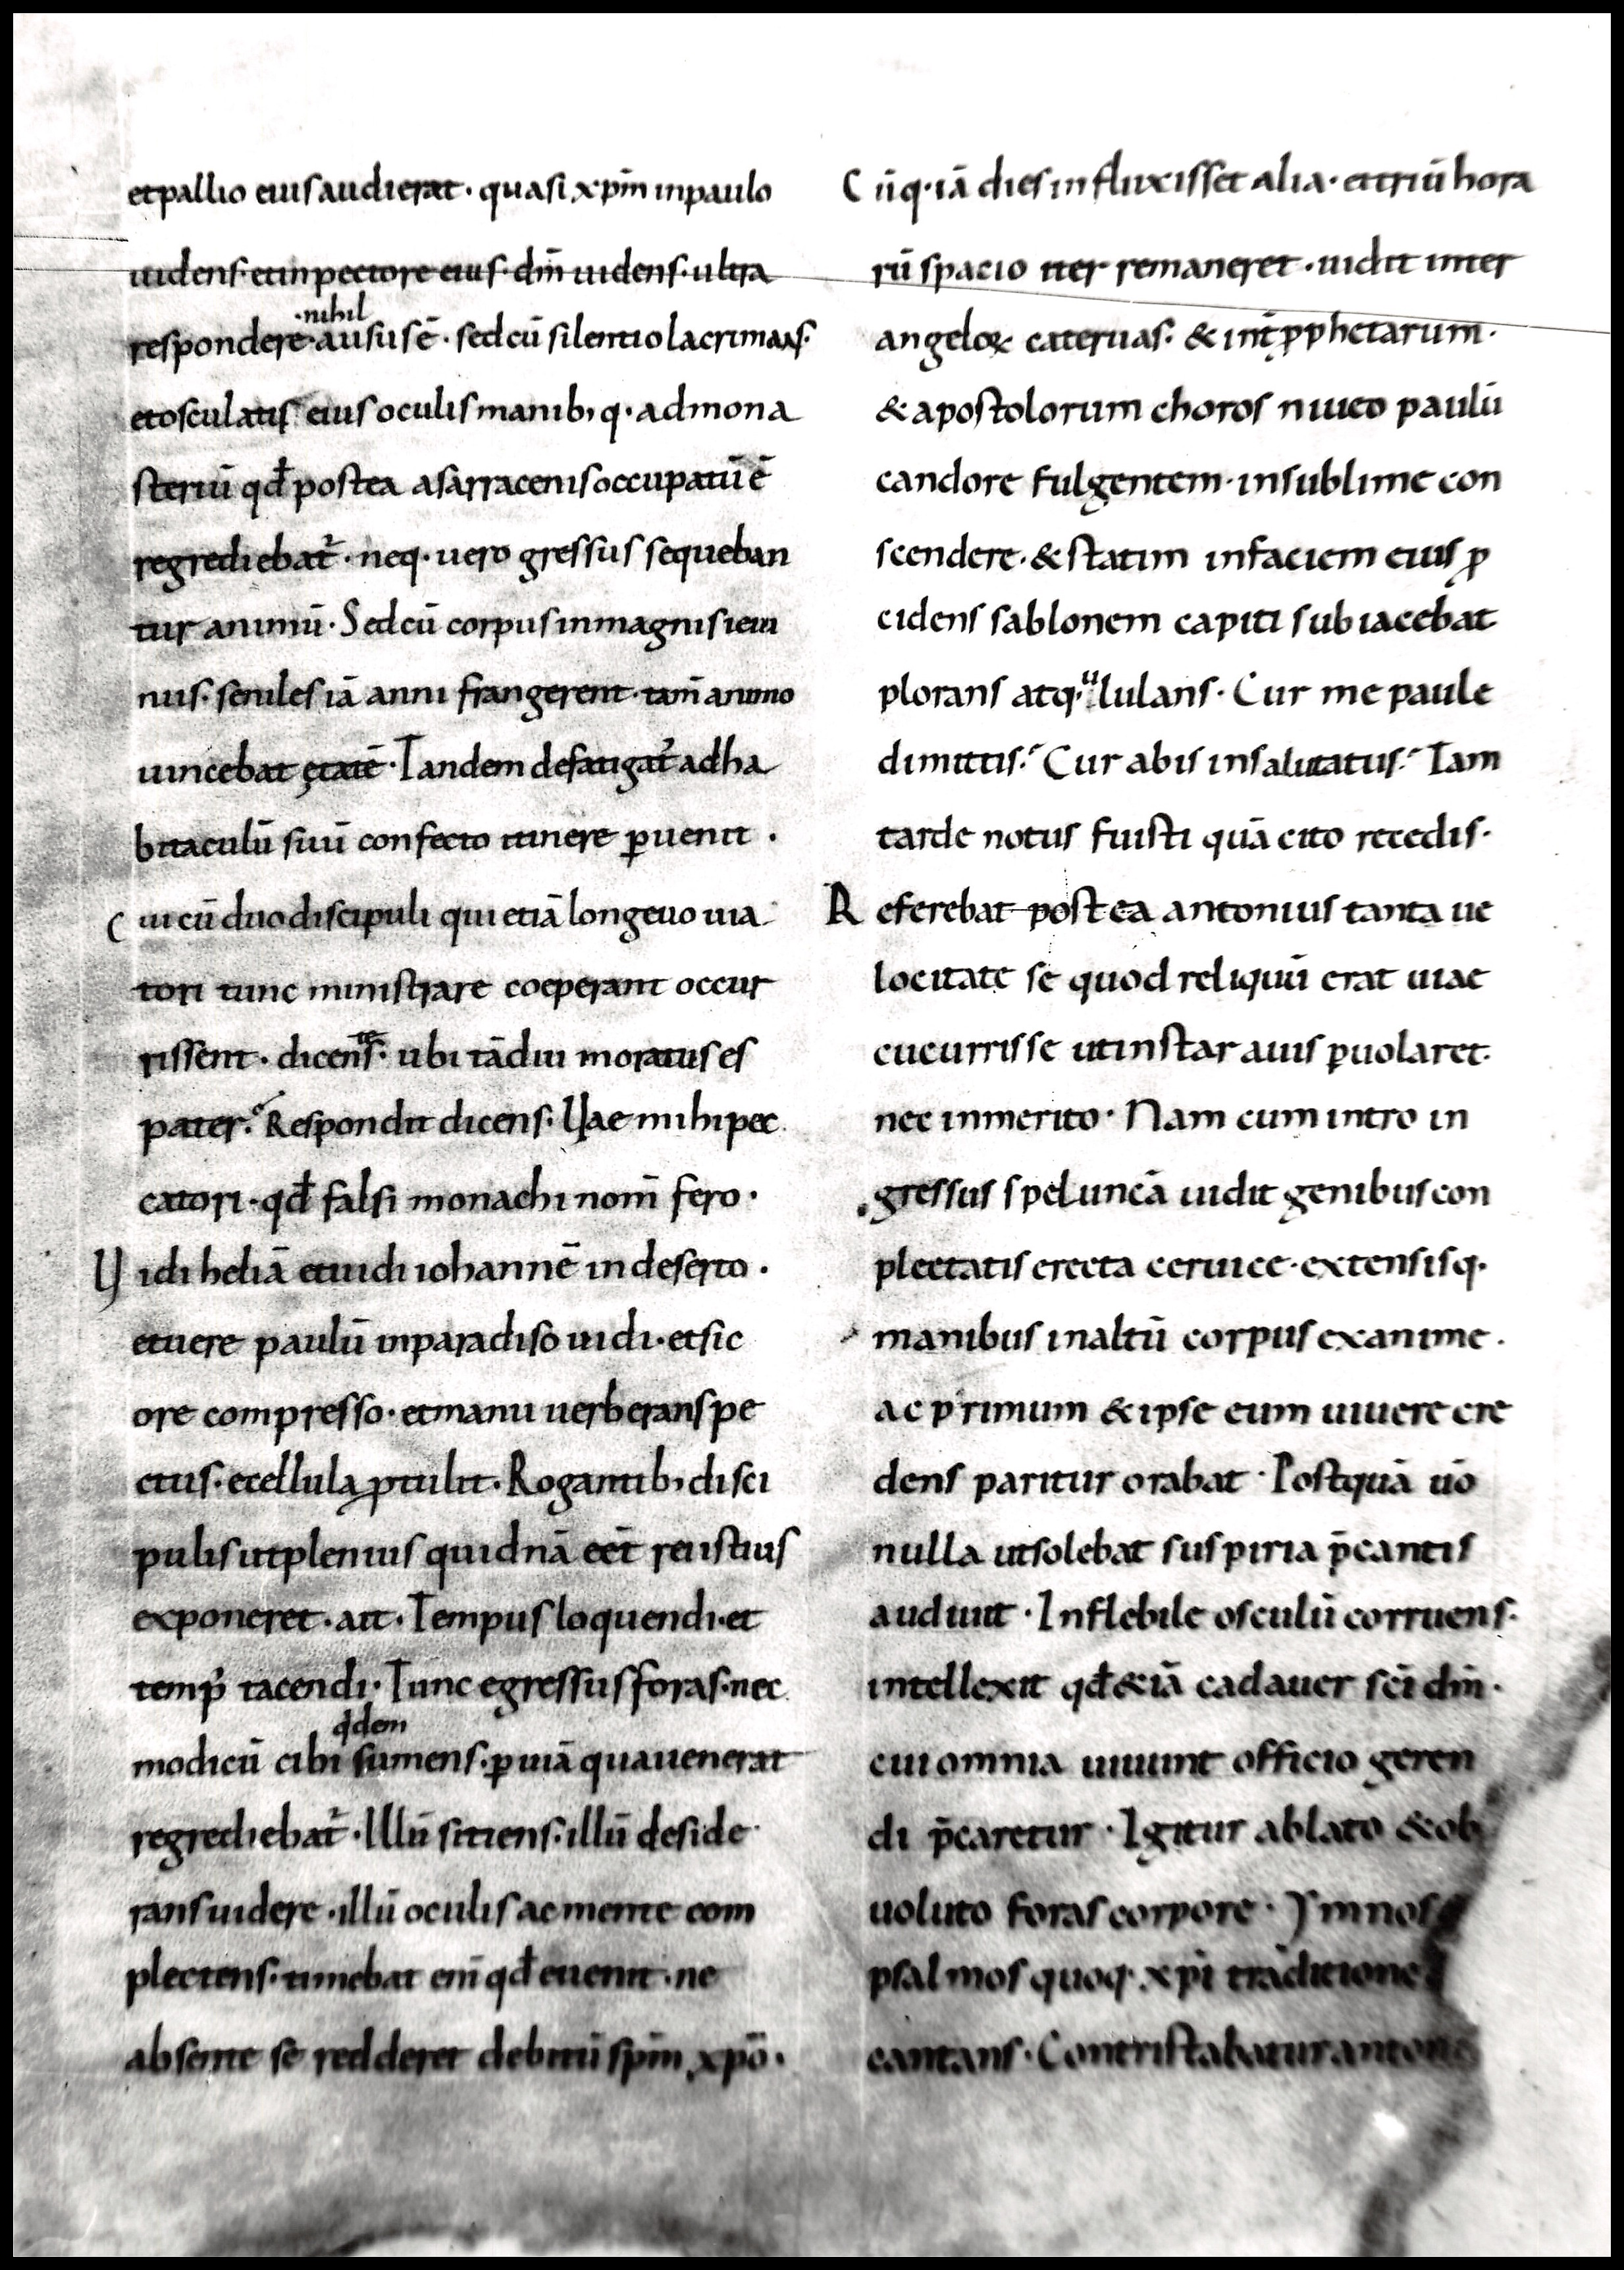 et pallio eius audierat · quasi xp̄m in paulo
uidens · et in pectore eius · dm̄ uidens · ultra
·nihil
respondere · ausus ē · sed cū silentio lacrimans ·
et osculatis eius oculis manib; q · ad mona
steriū qđ postea a sarracenis occupatū ē
regrediebat᷒ · neq · uero gressus sequeban
tur animū · Sed cū corpus inmagnis ieiu
nus · seniles iā anni frangerent · tam̄ animo
uincebat ętatē · Tandem defatigat᷒ ad ha
bitaculū suū confecto itinere ꝑuenit ·
Cui cū duo discipuli qui etiā longeuo uia
tori tunc ministrare coeperant occur
rissent · dicens · ubi tādiu moratus es
pater · Respondit dicens · Uae mihi pec
catori · qđ falsi monachi nom̄ fero ·
Uidi heliā et uidi iohannē in deserto ·
et uere paulū in paradiso uidi · et sic
ore compresso · et manu uerberans pe
ctus · e cellula ꝓtulit · Rogantib; disci
pulis ut plenius quidnā eēt rei istius
exponeret · ait · Tempus loquendi · et
temp᷒ tacendi · Tunc egressus foras · nec
q̇dem
modicū cibi sumens · ꝑ uiā qua uenerat
regrediebat᷒ · Illū sitiens · illū deside
rans uidere · illū oculis ac mente com
plectens · timebat eni̅ qđ euenit · ne
absente se redderet debitū sp̄m xp̄o ·
Cūq · iā dies influxisset alia · et triū hora
rū spacio iter remaneret · uidit inter
angeloꝝ cateruas · & int̄ ꝓphetarum ·
& apostolorum choros niueo paulū
candore fulgentem · in sublime con
scendere · & statim in faciem eius ꝓ
cidens sablonem capiti subiacebat
plorans atq · ululans · Cur me paule
dimittis · Cur abis insalutatus · Tam
tarde notus fuisti quā cito recedis ·
Referebat postea antonius tanta ue
locitate se quod reliquū erat uiae
cucurrisse ut instar auis ꝑuolaret ·
nec inmerito · Nam cum intro in
gressus speluncā uidit genibus con
plectatis erecta ceruice · extensisq ·
manibus in altū corpus exanime ·
ac primum & ipse eum uiuere cre
dens paritur orabat · Postquā uo̅
nulla ut solebat suspiria p̄cantis
audiuit · In flebile osculū corruens ·
intellexit qđ &iā cadauer sc̄i dm̄ ·
cui omnia uiuunt officio geren
di p̄caretur · Igitur ablato & ob
uoluto foras corpore · Ymnos
psalmos quoq · xp̄i traditione
cantans · Contristabatur